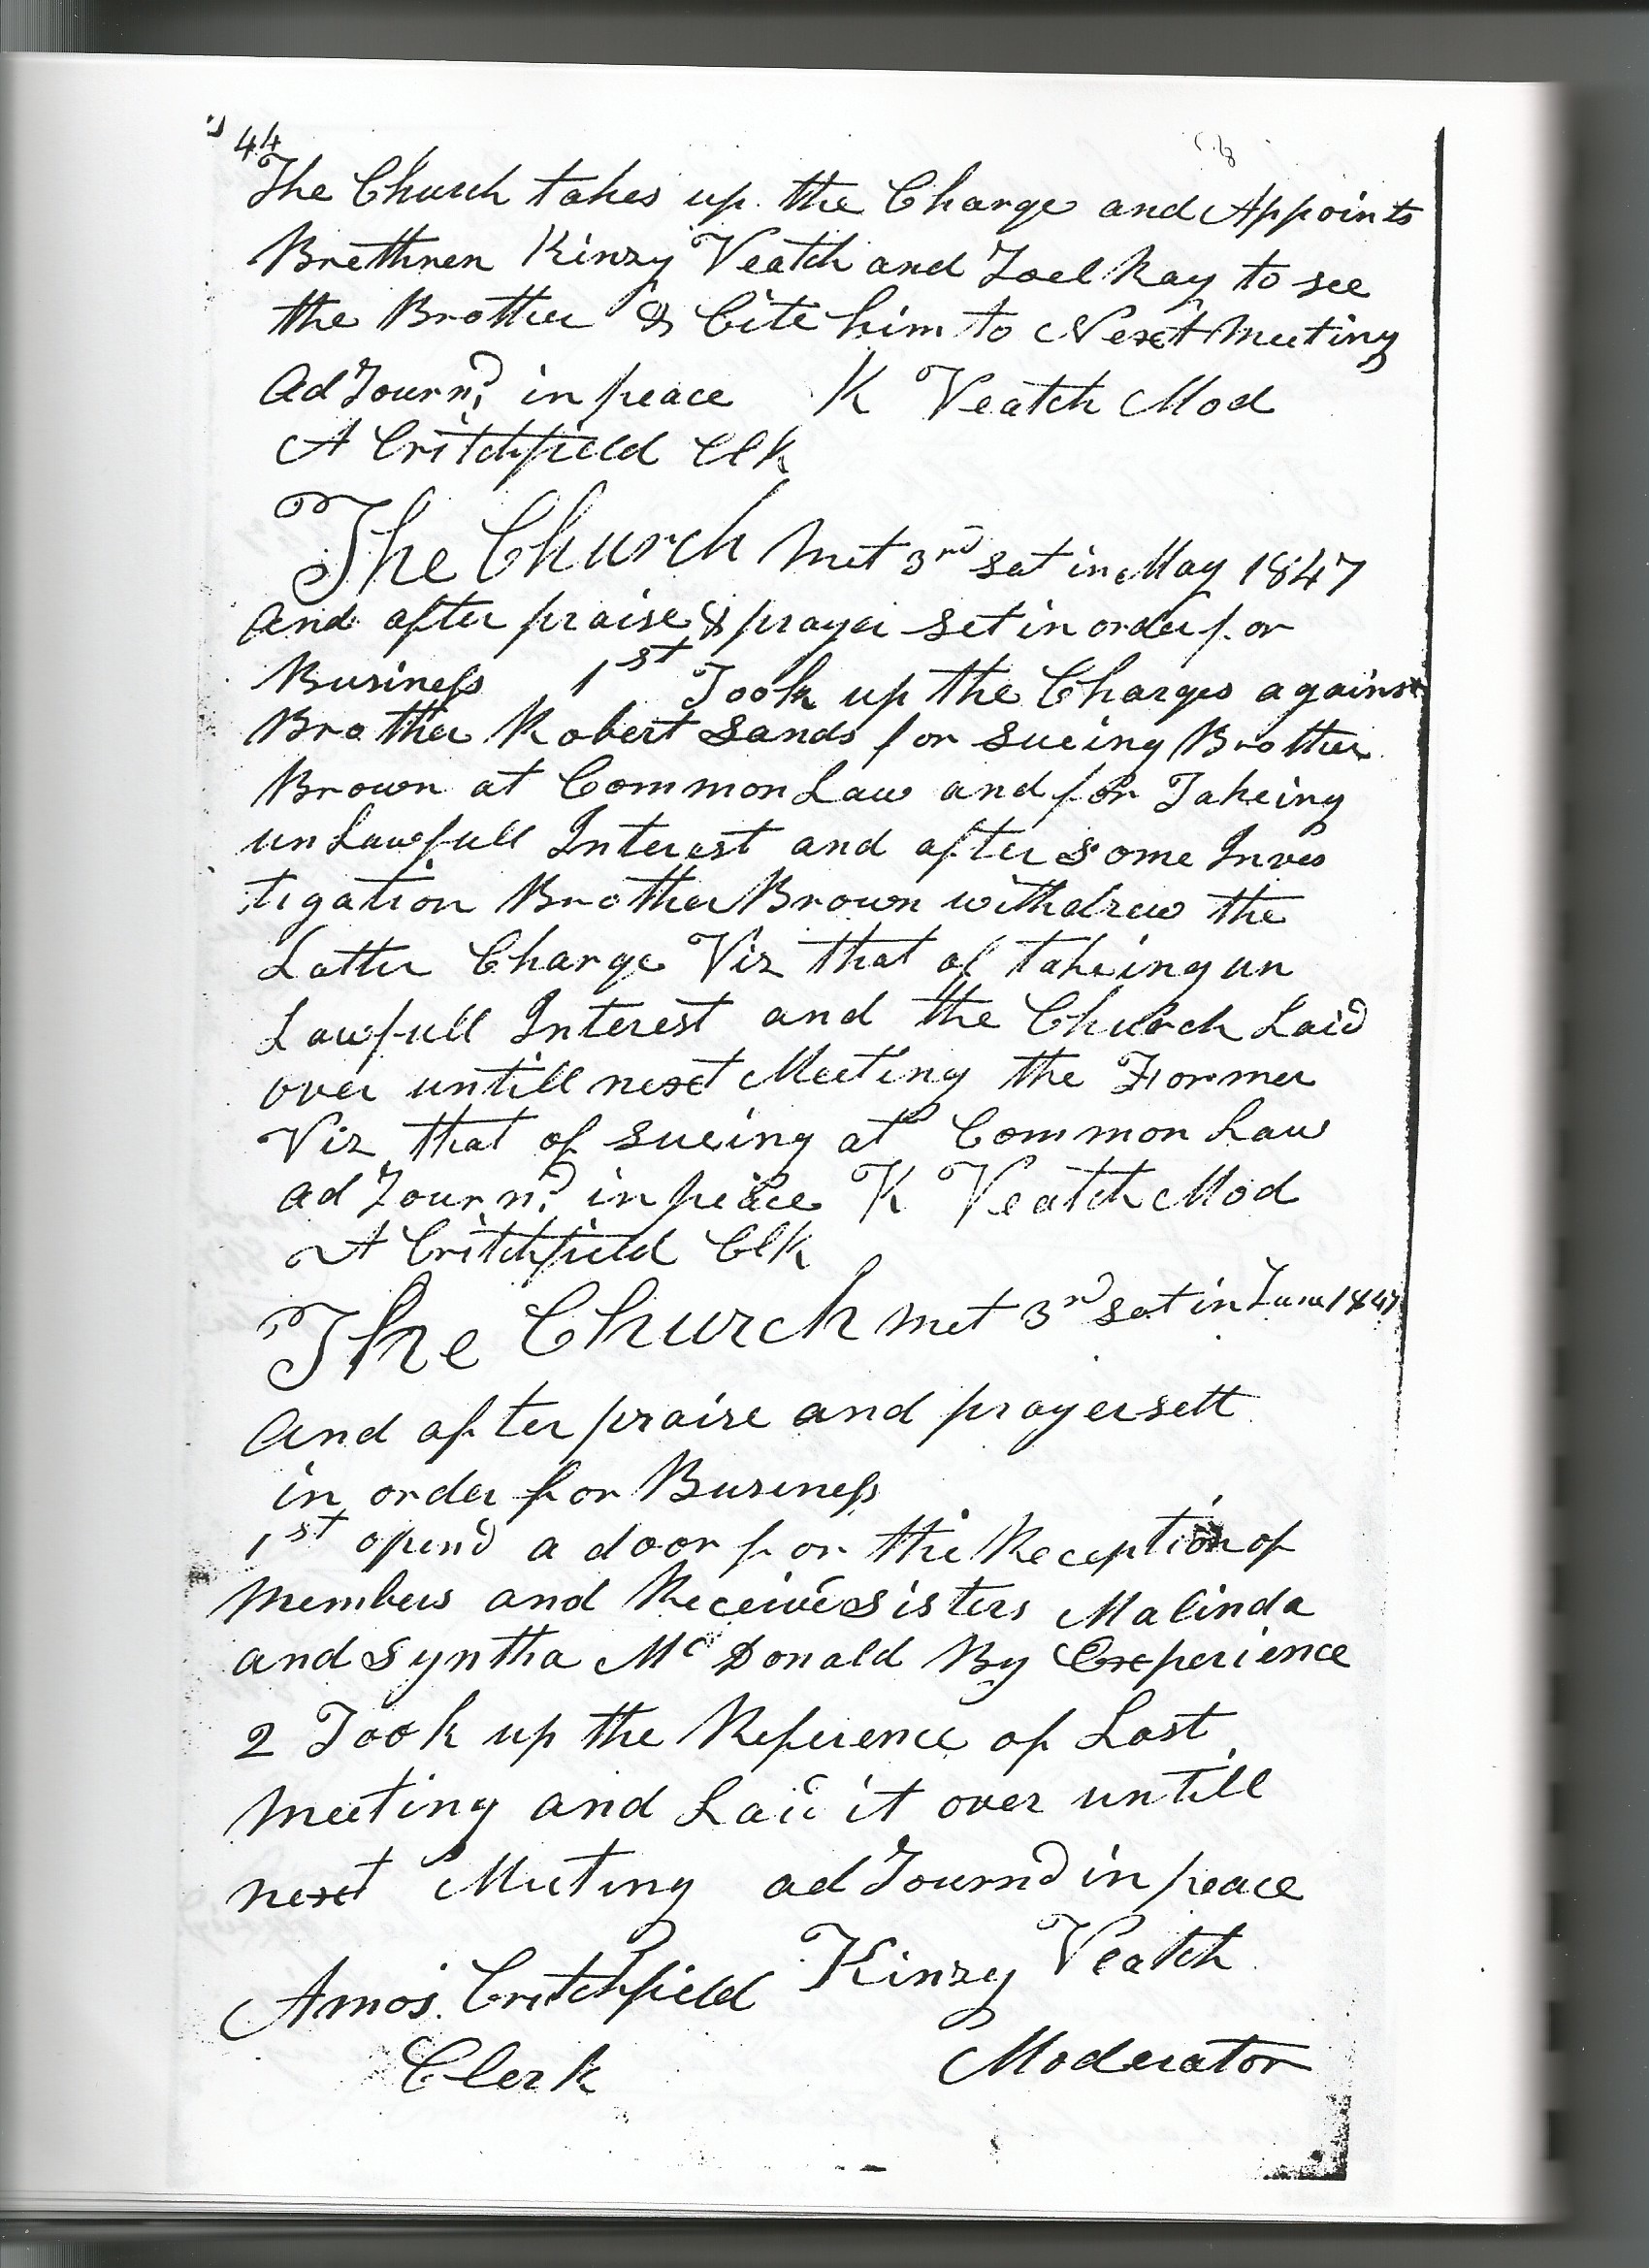 44
The Church takes up the Charge and Appoints
Brethren Kinzy Veatch and Joel Ray to see
the Brother & Cite him to Next Meeting
AdJournd in peace K Veatch Mod
A Critchfield Clk
The Church Met 3rd sat in May 1847
And after praise & prayer set in order for
Business 1st Took up the Charges against
Brother Robert Sands for sueing Brother
Brown at Common Law and for Takeing
unLawfull Interest and after some Inves
tigation Brother Brown withdrew the
Latter Charge Viz that of takeing un
Lawfull Interest and the Church Laid
over untill next Meeting the Former
Viz that of sueing at Common Law
adJournd in peace K Veatch Mod
A Critchfield Clk
The Church met 3rd sat in June 1847
And after praise and prayer sett
in order for Business
1st opend a door for the Reception of
Members and Receivd Sisters Malinda
and Syntha Mc Donald By Experience
2 Took up the Reference of Last
Meeting and Laid it over untill
next Meeting adJournd in peace
Amos Critchfield Kinzy Veatch
Clerk Moderator